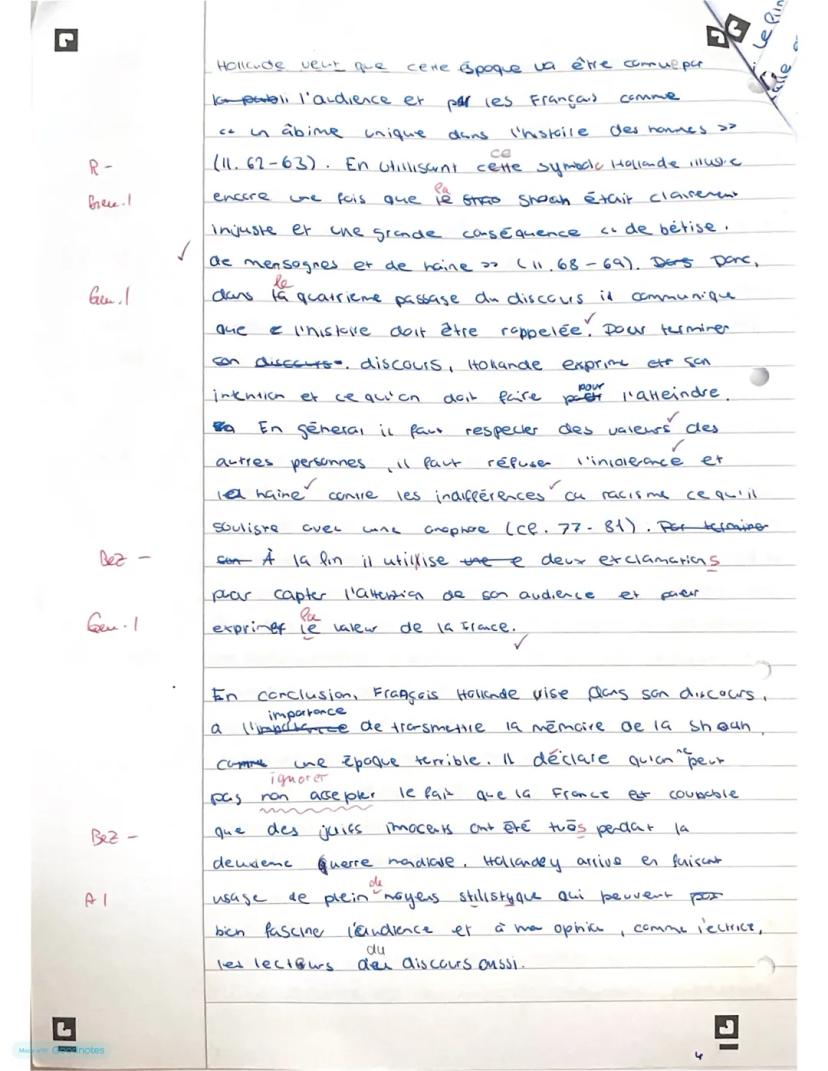 le fin
Hollande veut que cette époque va être connue par
l'audience et par les Français comme
<< un âbime unique dans l'histoire des hommes >>
R -
ce
(ll. 62-63). En utilisant cette symbole Hollande illustre
Gen. |
la
encore une fois que le Shoah était clairement
injuste et une grande conséquence << de bêtise,
✓
de mensonges et de haine >> (ll. 68-69). Donc,
le
Gen. |
dans la quatrième passage du discours il communique
que l'histoire doit être rappelée. Pour terminer
son discours. discours, Hollande exprime son
pour
intention et ce qu'on doit faire l'atteindre.
En géneral il faut respecter des valeurs des
autres personnes, il faut réfuser l'intolerance et
la haine contre les indifférences ou racisme ce qu'il
souligne avec une anaphore (cf. 77-81). Par terminer
Bez -
son À la fin il utillise une e deux exclamations
pour capter l'attention de son audience et pour
Gen. |
la
exprimer le valeur de la France.
✓
En conclusion, François Hollande vise dans son discours,
importance
a l'importance de transmettre la mémoire de la Shoah
comme une époque terrible. Il déclare qu'on ne peut
ignorer
pas non accepter le fait que la France est coupable
Bez -
que des juifs innocents ont été tués pendant la
deuxieme guerre mondiale. Hollande y arrive en faisant
A |
de
usage de plein moyens stilistyque qui peuvent
bien fascine l'audience et à mon opinion, comme lectrice,
du
les lecteurs des discours aussi.
Made with Goodnotes
4